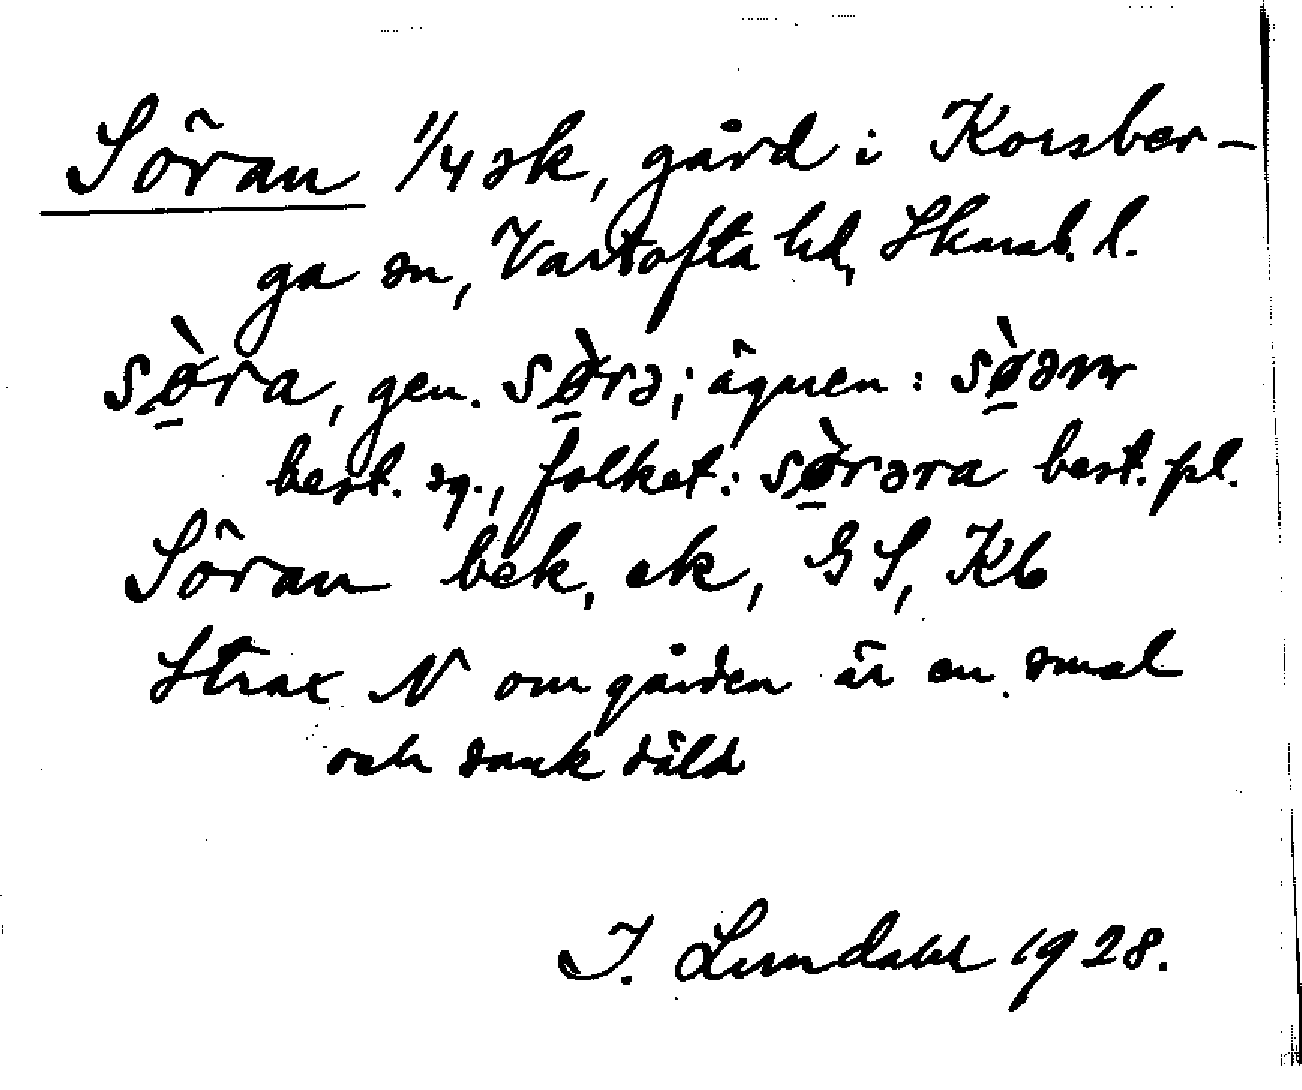 Söran 1/4 sk, gård i Korsber-
ga sn, Vartofta hd, Skarab. l.
sø̠̀ra, gen. sø̠̀rə; ägnen: sø̠̀əm
best. sg., folket: sø̠̀rəra best. pl.
Söran bek, ek, GS, Kb
Strax N om gården är en smal
och sank däld
I. Lundahl 1928.